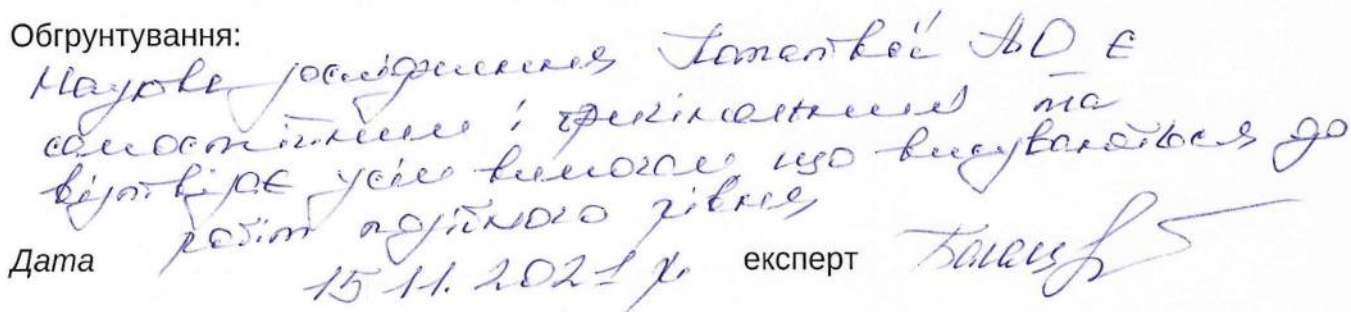 Обгрунтування:
Наукове дослідження АО є
самостійним і оригінальним та
відповідає усім вимогам що висуваються до
робіт подійного рівня
Дата 15.11.2021 р. експерт